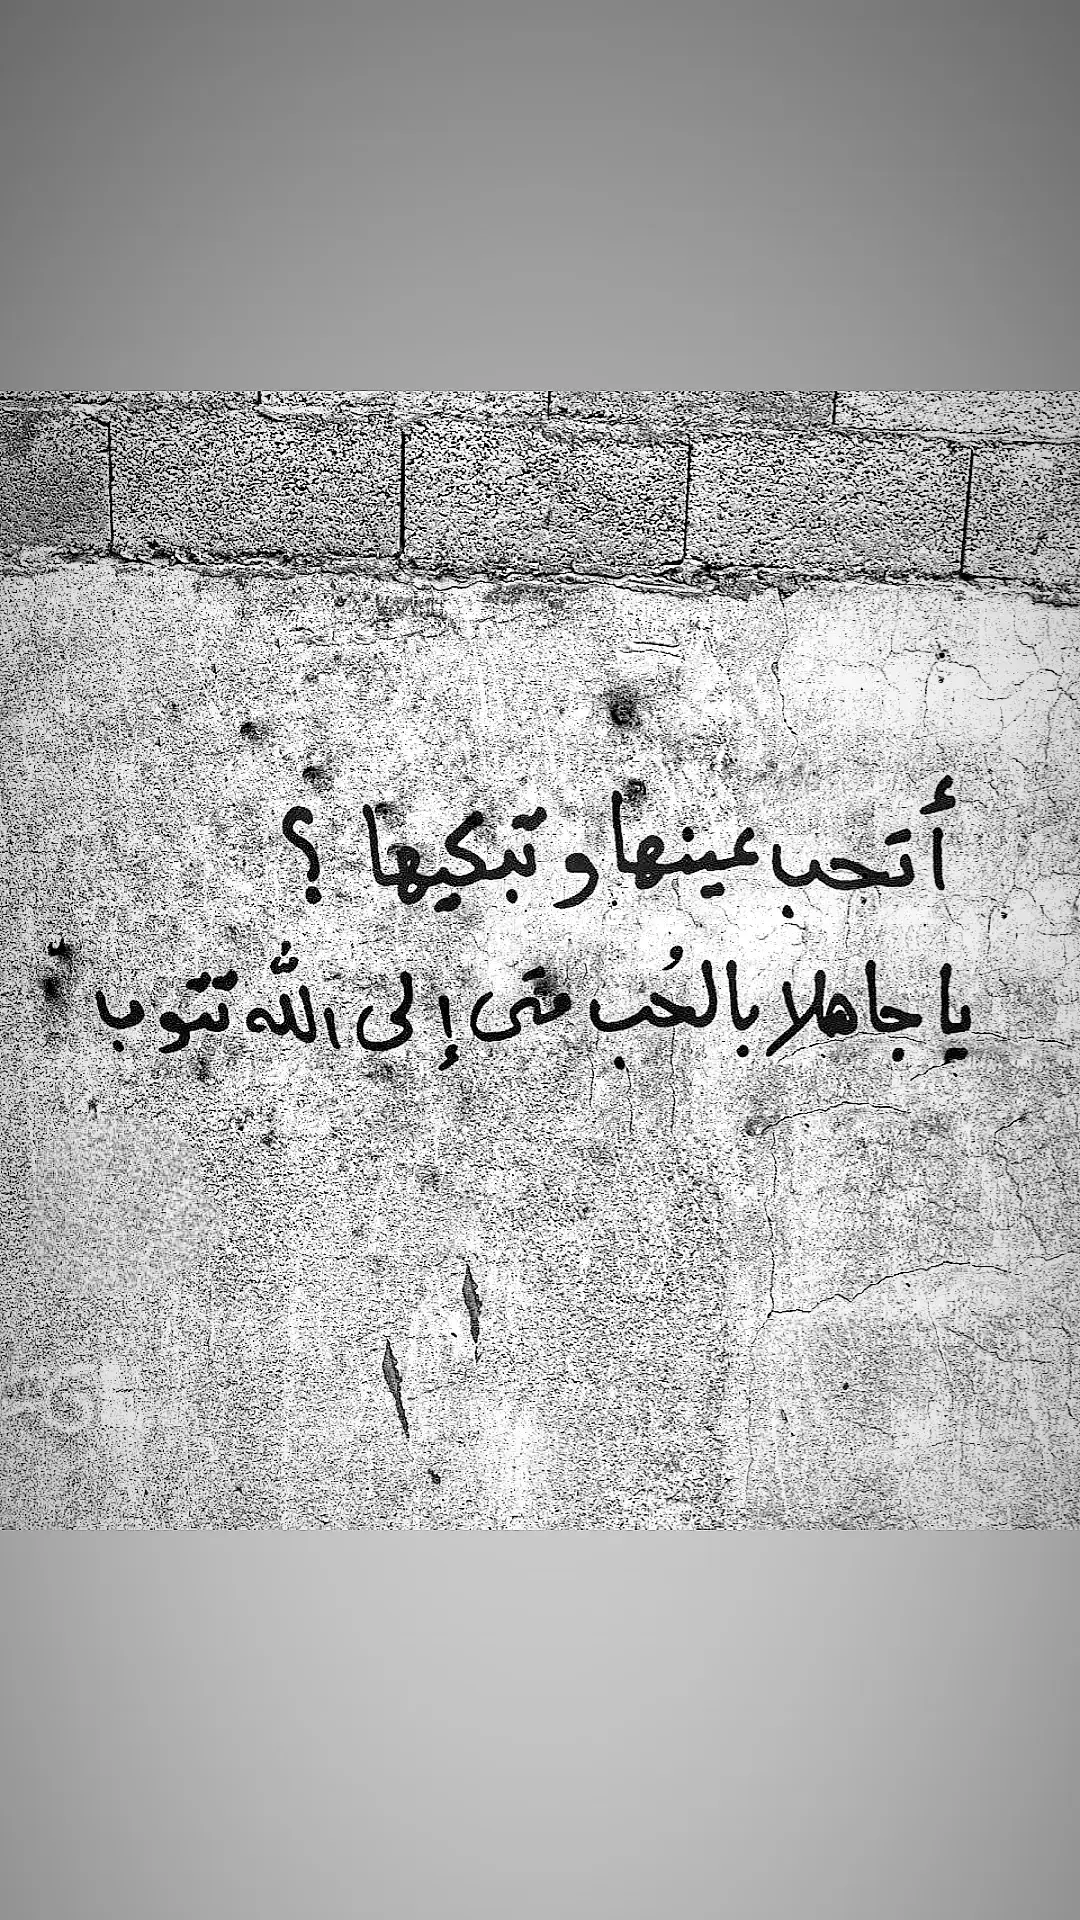 أتحب عينها و تبكيها ؟
يا جاهلا بالحُب متى إلى اللّه تتوب